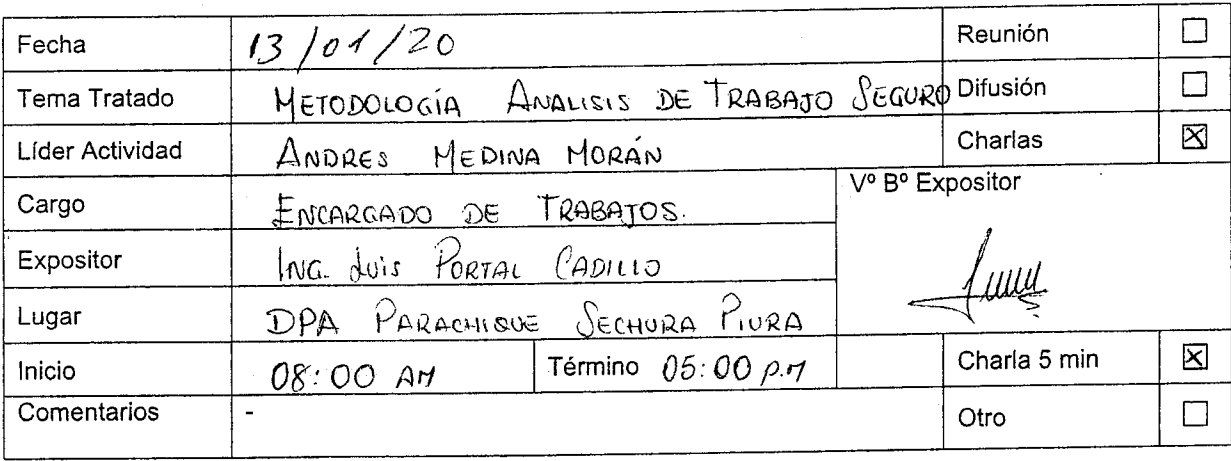 Fecha 13/01/20 Reunión ☐
Tema Tratado METODOLOGÍA ANALISIS DE TRABAJO SEGURO Difusión ☐
Líder Actividad ANDRES MEDINA MORÁN Charlas ☒
Cargo ENCARGADO DE TRABAJOS. Vº Bº Expositor
Expositor ING. Luis PORTAL CADILLO
Lugar DPA PARACHIQUE SECHURA PIURA
Inicio 08:00 AM Término 05:00 P.M Charla 5 min ☒
Comentarios - Otro ☐